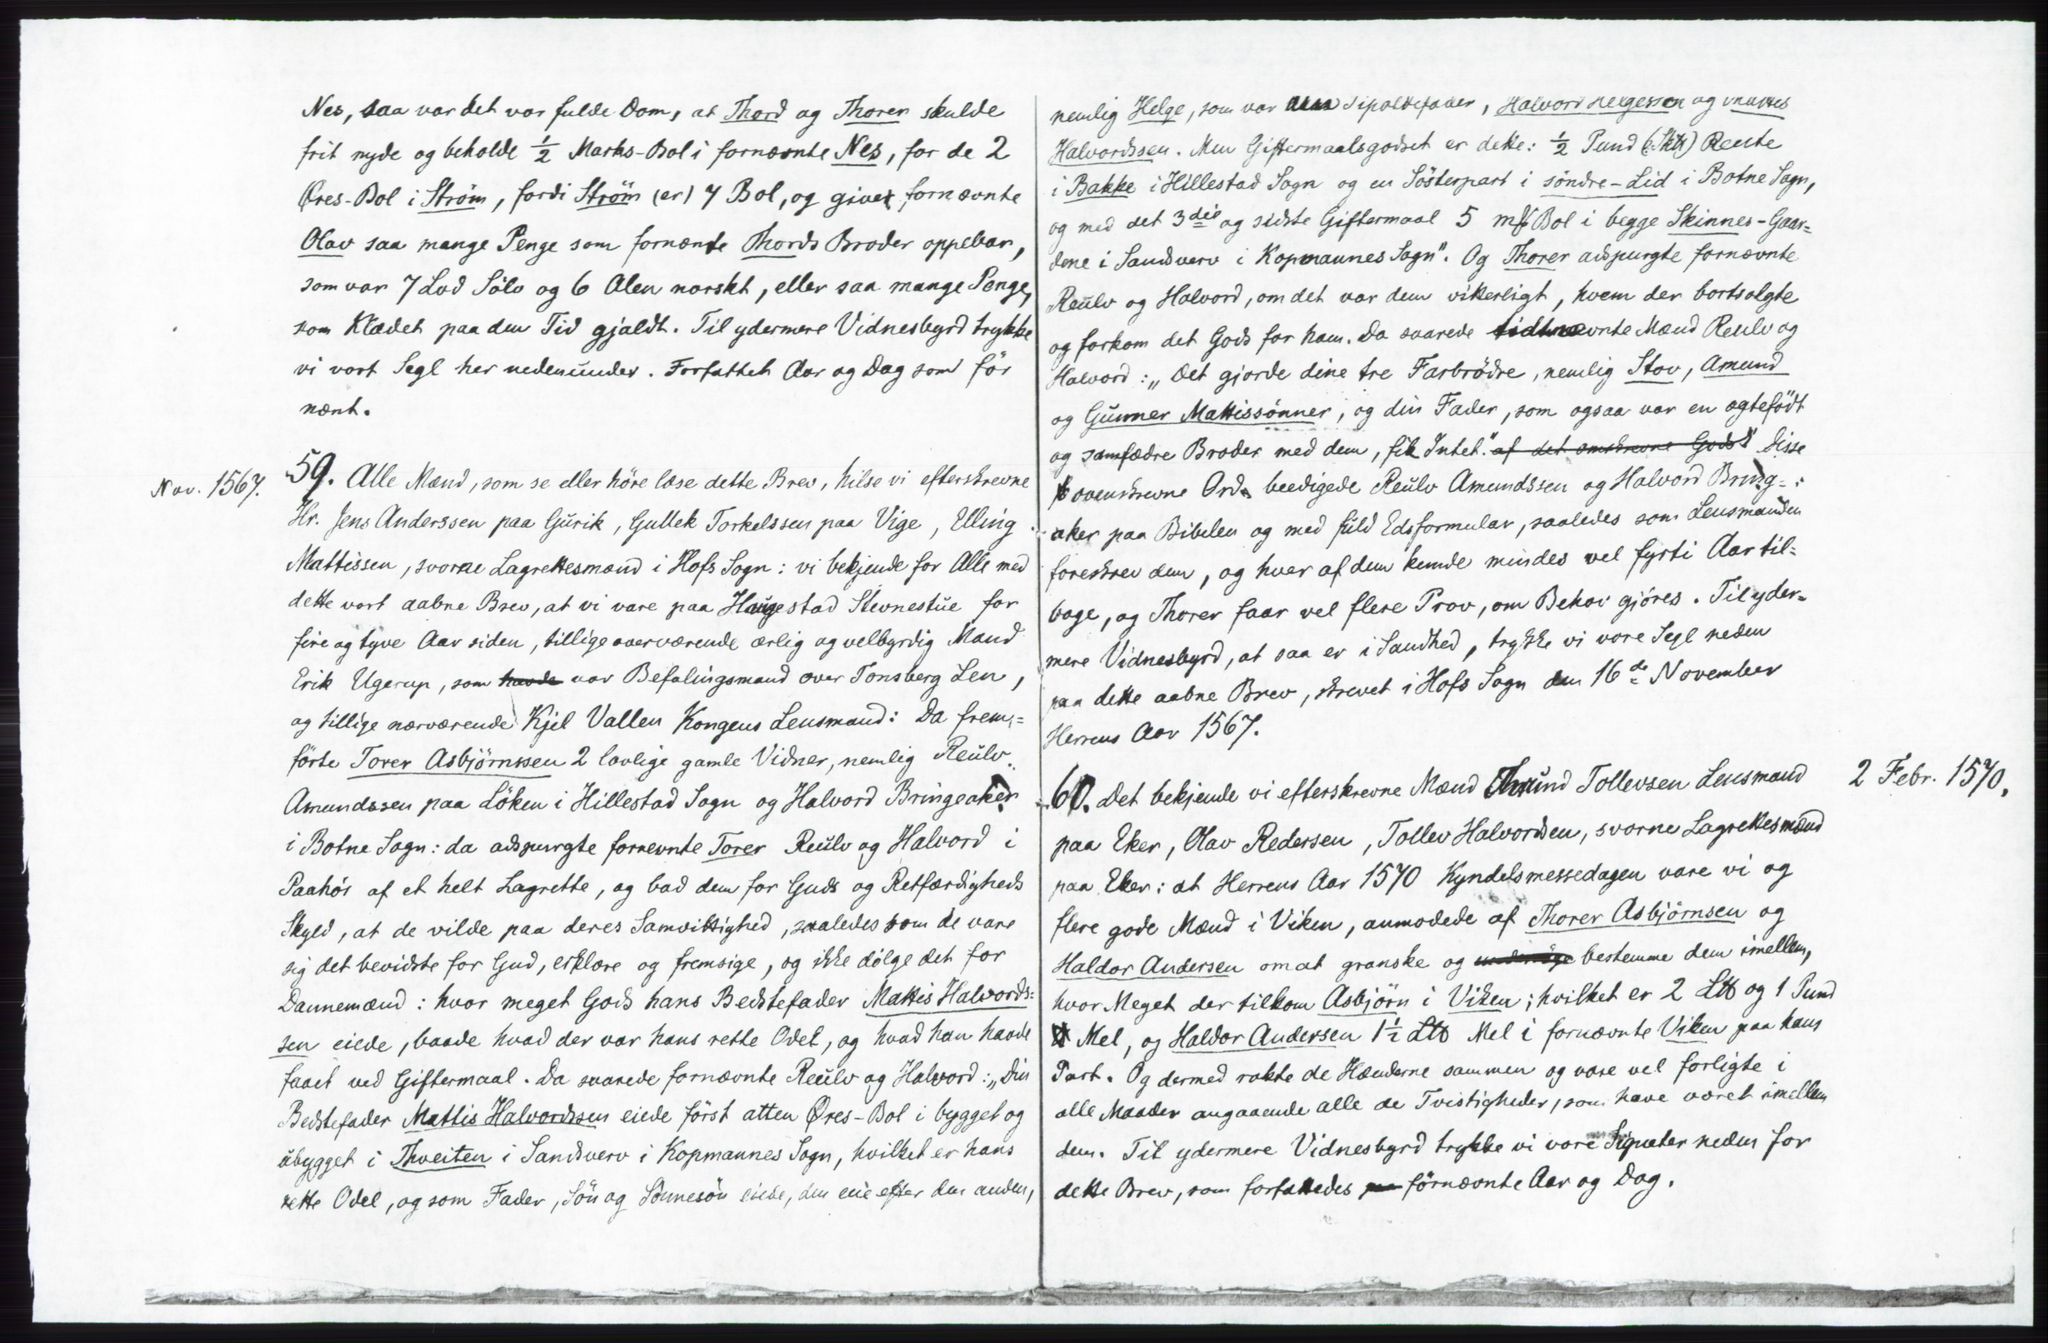 Nes, saa var det vor fulde Dom, at Thord og Thorer skulde
frit nyde og beholde ½ Marks-Bol i fornævnte Nes, for de 2
Øres-Bol i Strøm, fordi Strøm (er) 7 Bol, og give fornævnte
Olav saa mange Penge som fornænte Thords Broder oppebar,
som var 7 Lod Sölv og 6 Alen norskt, eller saa mange Penge,
som Klædet paa den Tid gjaldt. Til ydermere Vidnesbyrd trykke
vi vort Segl her nedenunder. Forfattet Aar og Dag som för
nænt.
Nov. 1567.
59. Alle Mænd, som se eller höre læse dette Brev, hilse vi efterskrevne
Hr. Jens Anderssen paa Gurik, Gullek Torkelssen paa Vige, Elling
Mattissen, svorne Lagrettesmænd i Hofs Sogn: vi bekjende for Alle med
dette vort aabne Brev, at vi vare paa Haugestad Stevnestue for
fire og tyve Aar siden, tillige overværende ærlig og velbyrdig Mand
Erik Ugerup, som havde var Befalingsmand over Tonsberg Len,
og tillige nærværende Kjel Vallen Kongens Lensmand: Da frem=
förte Torer Asbjörnssen 2 lovlige gamle Vidner, nemlig Reulv
Amundssen paa Löken i Hillestad Sogn og Halvord Bringeaker
i Botne Sogn: da adspurgte fornevnte Torer Reulv og Halvord i
Paahör af et helt Lagrette, og bad dem for Guds og Retfærdigheds
Skyld, at de vilde paa deres Samvittighed, saaledes som de vare
sig det bevidste for Gud, erklære og fremsige, og ikke dölge det for
Dannemænd: hvor meget Gods hans Bedstefader Mattis Halvords=
sen eiede, baade hvad der var hans rette Odel, og hvad han havde
faaet ved Giftermaal. Da svarede fornævnte Reulv og Halvord: „Din
Bedstefader Mattis Halvordssen eiede först atten Øres-Bol i bygget og
ubygget i Thveiten i Sandsverv i Kopmannes Sogn, hvilket er hans
rette Odel, og som Fader, Sön og Sönnesön eiede, den ene efter den anden,
nemlig Helge, som var Tipoldefader, Halvord Helgessen og Mattis
Halvordssen. Men Giftermaalsgodset er dette: ½ Pund Rente
i Bakke i Hillestad Sogn og en Sösterpart i söndre-Lid i Botne Sogn,
og med det 3die og sidste Giftermaal 5 Bol i begge Skinnes-Gaar=
dene i Sandsverv i Kopmannes Sogn". Og Thorer adspurgte fornævnte
Reulv og Halvord, om det var dem vitterligt, hvem der bortsolgte
og forkom det Gods for ham. Da svarede tidtnævnte Mænd Reulv og
Halvord: „Det gjorde dine tre Farbrödre, nemlig Stov, Amund
og Gunner Mattissönner, og din Fader, som ogsaa var en ægtefödt
og samfædre Broder med dem, fik Intet." af det omskrevne Gods" Disse
ovenskrevne Ord beedigede Reulv Amundssen og Halvord Bring=
aker paa Bibelen og med fuld Edsformular, saaledes som Lensmanden
foreskrev dem, og hver af dem kunde mindes vel fyrti Aar til=
bage, og Thorer faar vel flere Prov, om Behov gjöres. Til yder=
mere Vidnesbyrd, at saa er i Sandhed, trykke vi vore Segl neden
paa dette aabne Brev, skrevet i Hofs Sogn den 16de November
Herrens Aar 1567.
2 Febr. 1570.
60. Det bekjende vi efterskrevne Mænd Tollevsen Lensmand
paa Eker, Olav Redersen, Tollev Halvordsen, svorne Lagrettesmænd
paa Eker: at Herrens Aar 1570 Kyndelsmessedagen vare vi og
flere gode Mænd i Viken, anmodede af Thorer Asbjörnsen og
Haldor Andersen om at granske og bestemme dem imellem,
hvor Meget der tilkom Asbjörn i Viken; hvilket er 2 L℔ og 1 Pund
Mel, og Haldor Andersen 1½ L℔ Mel i fornævnte Viken paa hans
Part. Og dermed rakte de Hænderne sammen og vare vel forligte i
alle Maader angaaende alle de Tvistigheder, som have været imellem
dem. Til ydermere Vidnesbyrd trykke vi vore Signeter neden for
dette Brev, som forfattedes förnævnte Aar og Dag.